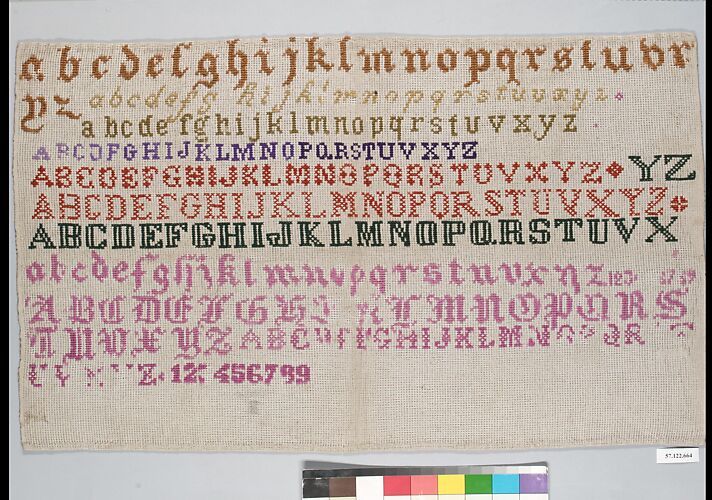 a b c d e f g h i j k l m n o p q r s t u v x
y z a b c d e f g h i j k l m n o p q r s t u v x y z
a b c d e f g h i j k l m n o p q r s t u v x y z
A B C D F G H I J K L M N O P Q R S T U V X Y Z
A B C D E F G H I J K L M N O P Q R S T U V X Y Z
A B C D E F G H I J K L M N O P Q R S T U V X Y Z
A B C D E F G H I J K L M N O P Q R S T U V X Y Z
a b c d e f g h i k l m n o p q r s t u v x y z 123
A B C D E F G H I K L M N O P Q R S
T U V X Y Z A B C D E F G H I J K L M N O P Q R
Z 12 456789
57.122.664